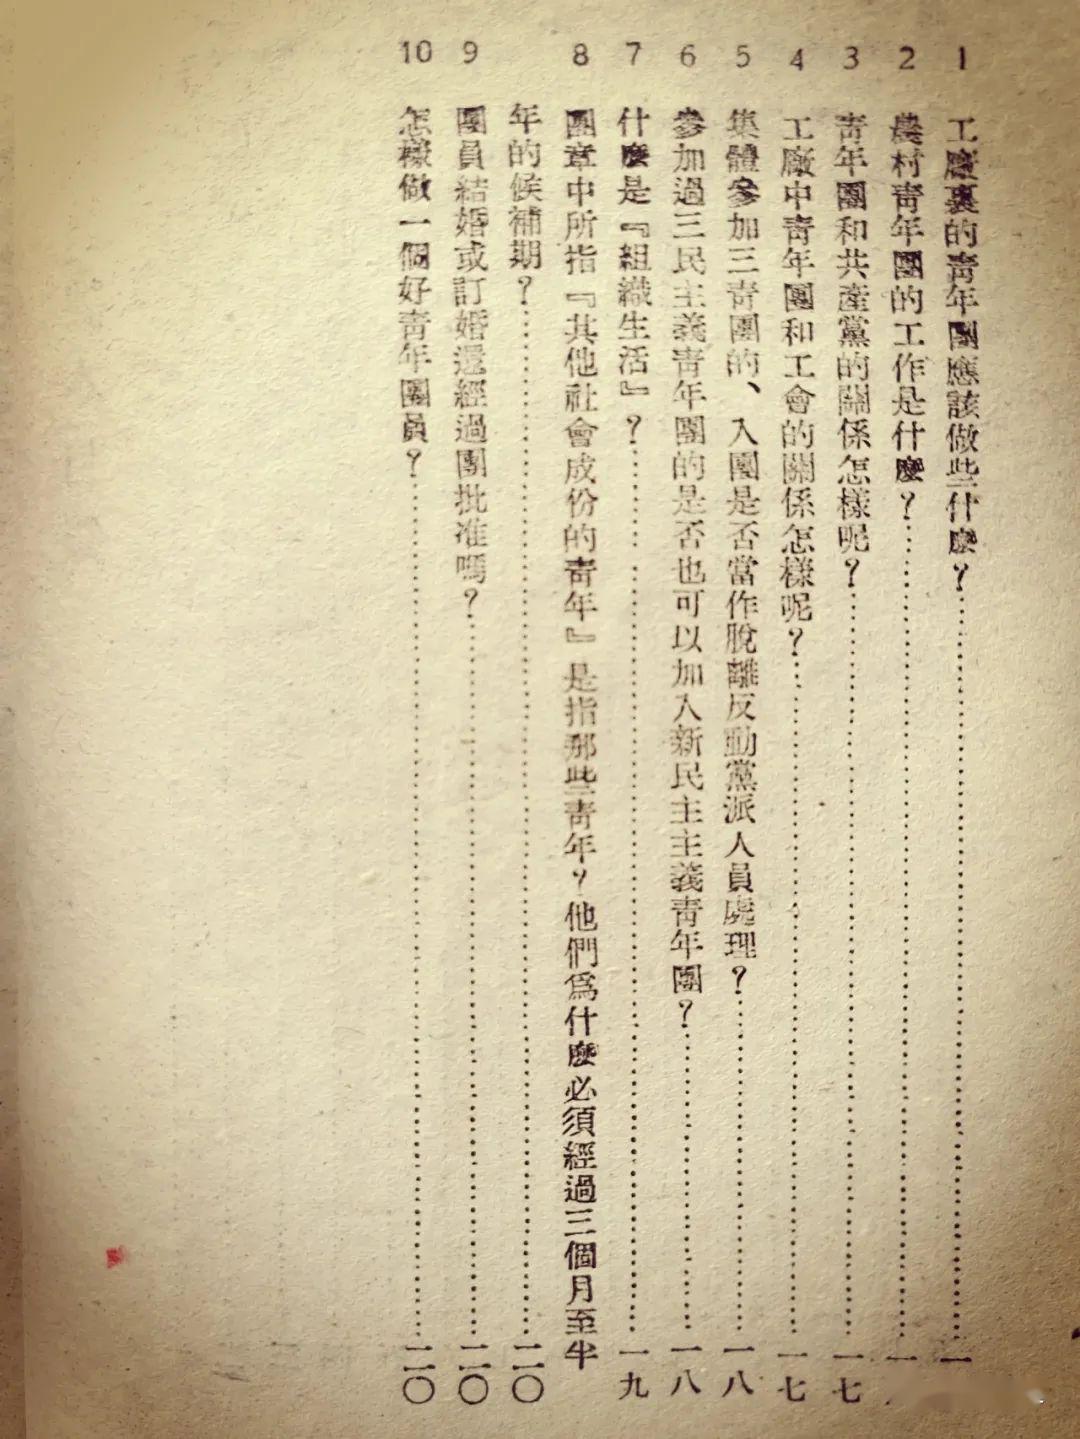 1 工廠裏的靑年團應該做些什麼？……一
2 農村靑年團的工作是什麼？……一
3 靑年團和共產黨的關係怎樣呢？……一七
4 工廠中靑年團和工會的關係怎樣呢？……一七
5 集體參加三靑團的、入團是否當作脫離反動黨派人員處理？……一八
6 參加過三民主義靑年團的是否也可以加入新民主主義靑年團？……一八
7 什麼是『組織生活』？……一九
8 團章中所指『其他社會成份的靑年』是指那些靑年？他們爲什麼必須經過三個月至半
年的候補期？……二〇
9 團員結婚或訂婚還經過團批准嗎？……二〇
10 怎樣做一個好靑年團員？……二〇